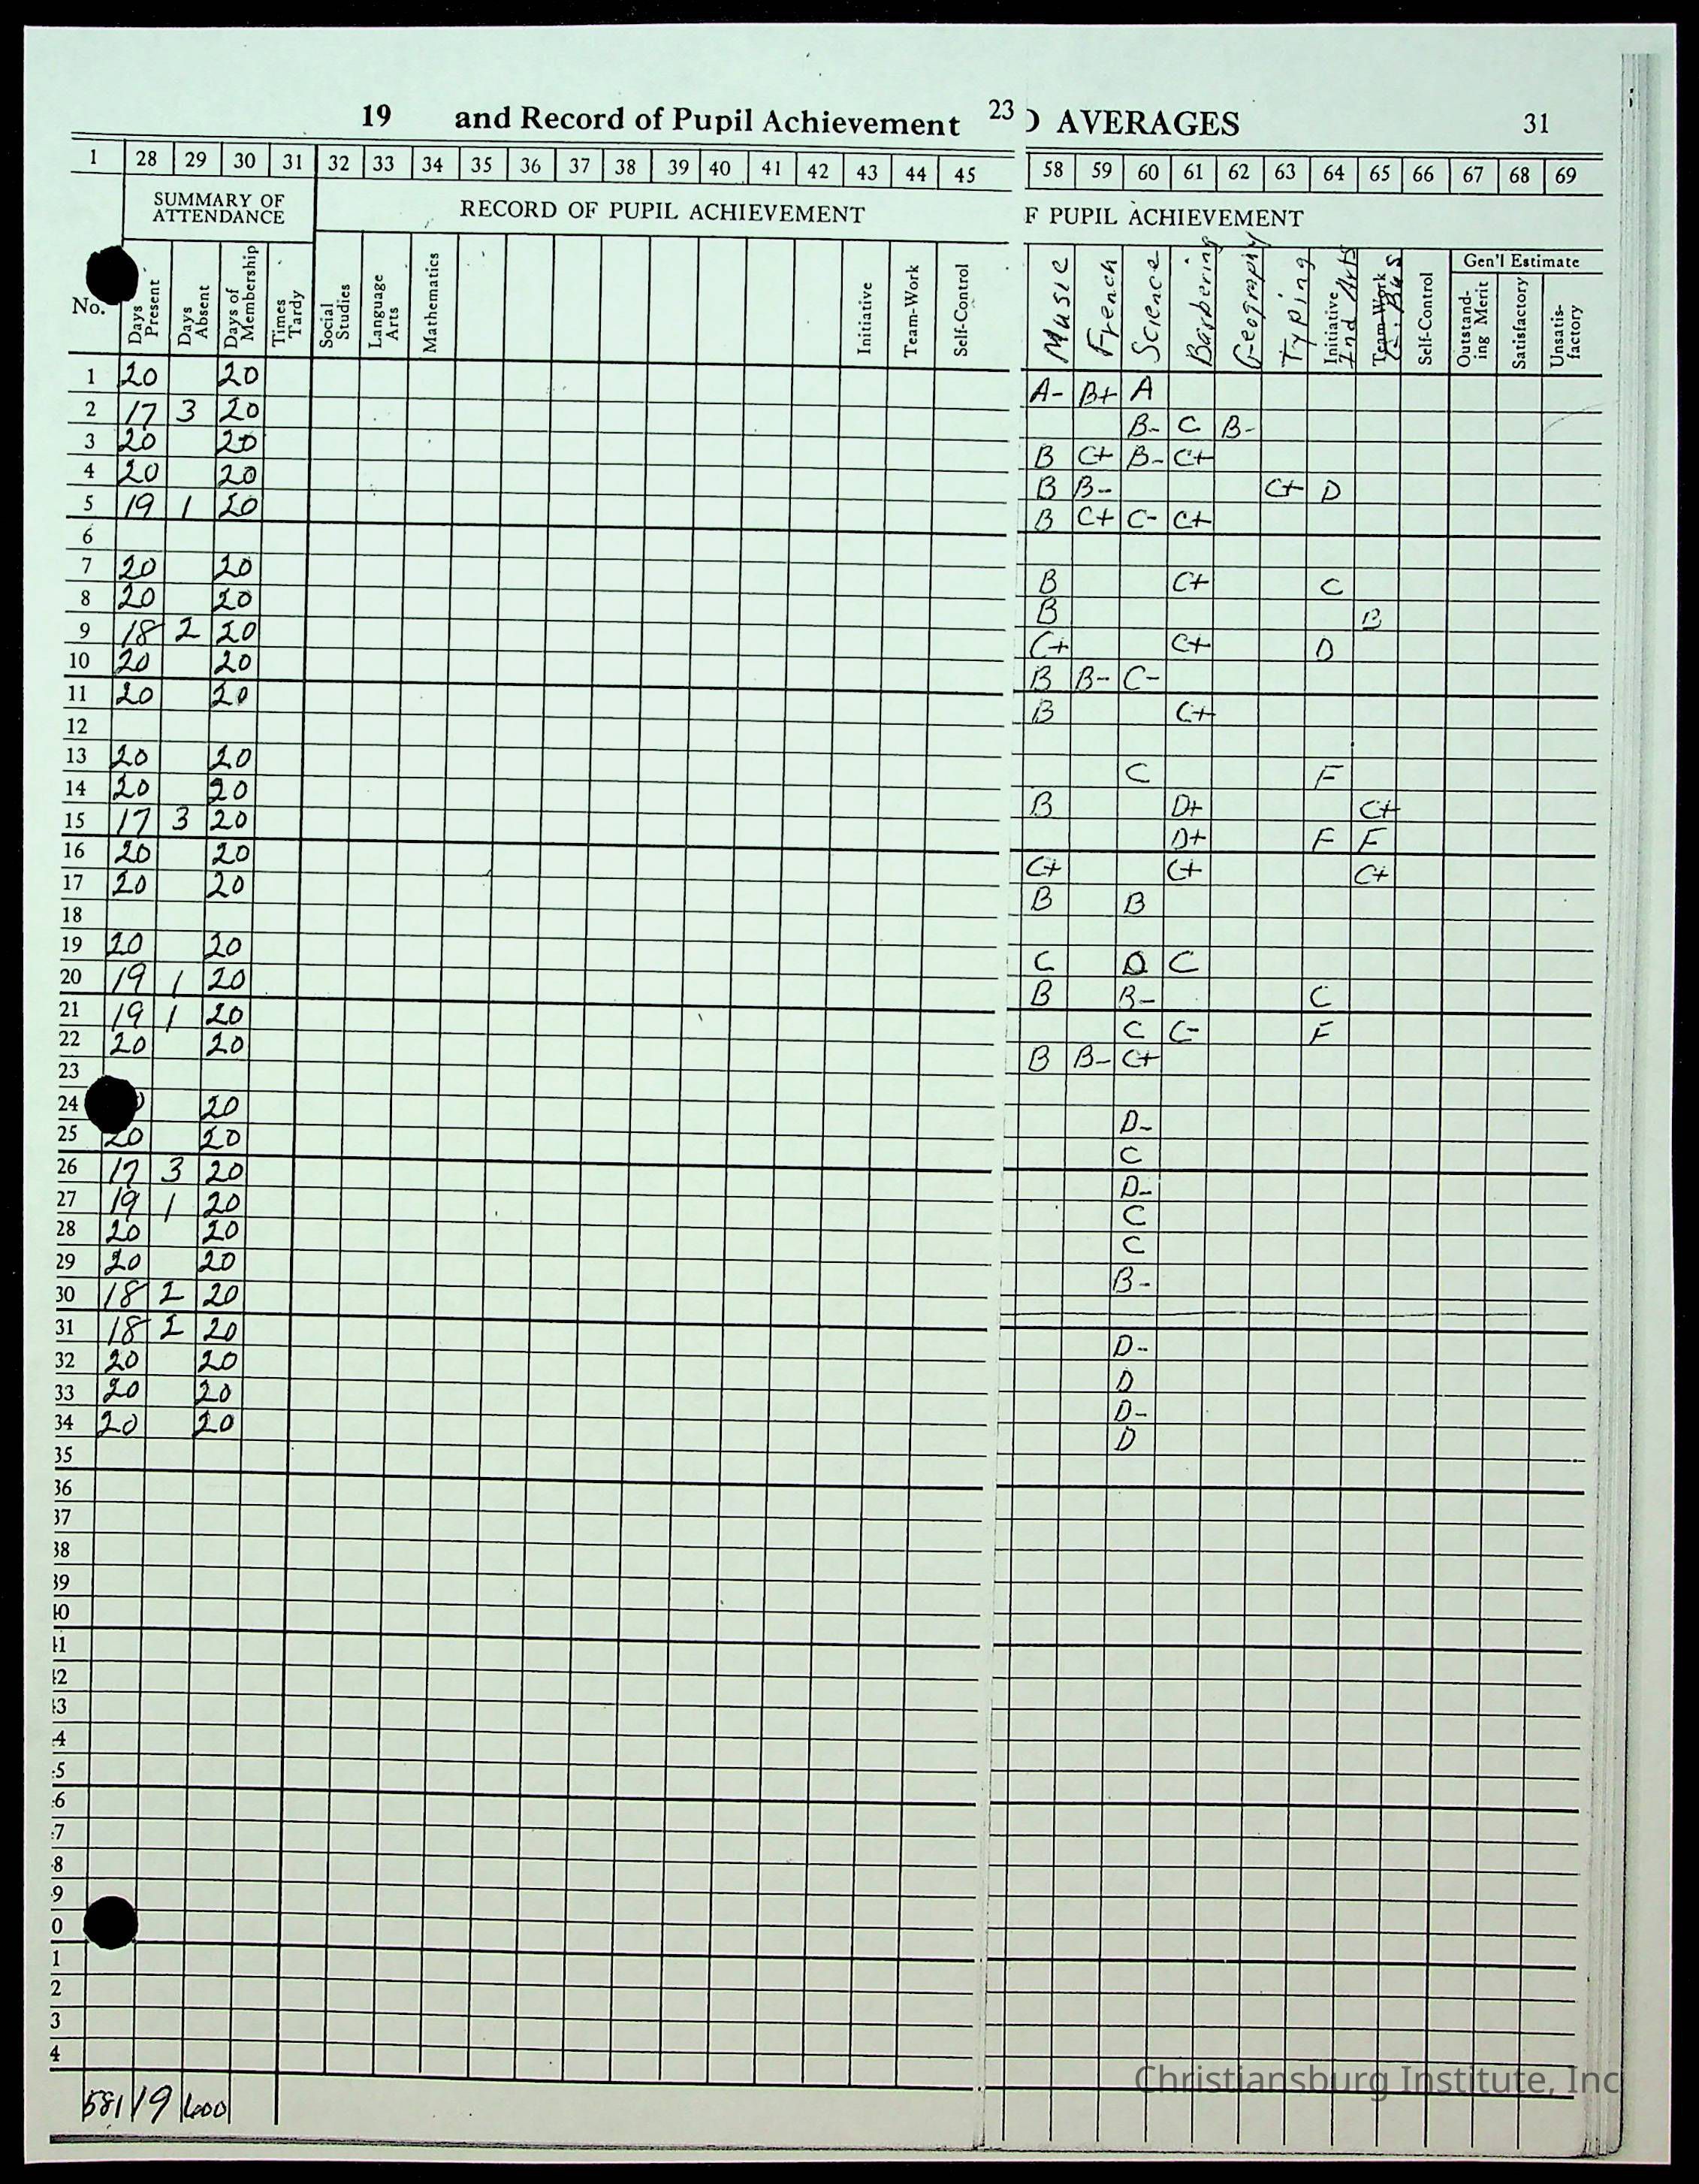 19 and Record of Pupil Achievement 23 D AVERAGES 31
1 28 29 30 31 32 33 34 35 36 37 38 39 40 41 42 43 44 45 58 59 60 61 62 63 64 65 66 67 68 69
SUMMARY OF ATTENDANCE RECORD OF PUPIL ACHIEVEMENT F PUPIL ACHIEVEMENT
Gen'l Estimate
No. Days Present Days Absent Days of Membership Times Tardy Social Studies Language Arts Mathematics Initiative Team-Work Self-Control Music French Science Barbering Geography Typing Initiative Ind Arts Team-Work G. Bus Self-Control Outstand-ing Merit Satisfactory Unsatis-factory
1 20 20 A- B+ A
2 17 3 20 B- C B-
3 20 20 B C+ B- C+
4 20 20 B B- C+ D
5 19 1 20 B C+ C- C+
6
7 20 20 B C+ C
8 20 20 B B
9 18 2 20 C+ C+ D
10 20 20 B B- C-
11 20 20 B C+
12
13 20 20 C F
14 20 20 B D+ C+
15 17 3 20 D+ F F
16 20 20 C+ C+ C+
17 20 20 B B
18
19 20 20 C D C
20 19 1 20 B B- C
21 19 1 20 C C- F
22 20 20 B B- C+
23
24 20 D-
25 20 20 C
26 17 3 20 D-
27 19 1 20 C
28 20 20 C
29 20 20 B-
30 18 2 20
31 18 2 20 D-
32 20 20 D
33 20 20 D-
34 20 20 D
35
36
37
38
39
40
41
42
43
4
5
6
7
8
9
0
1
2
3
4
581 19 600
Christiansburg Institute, Inc